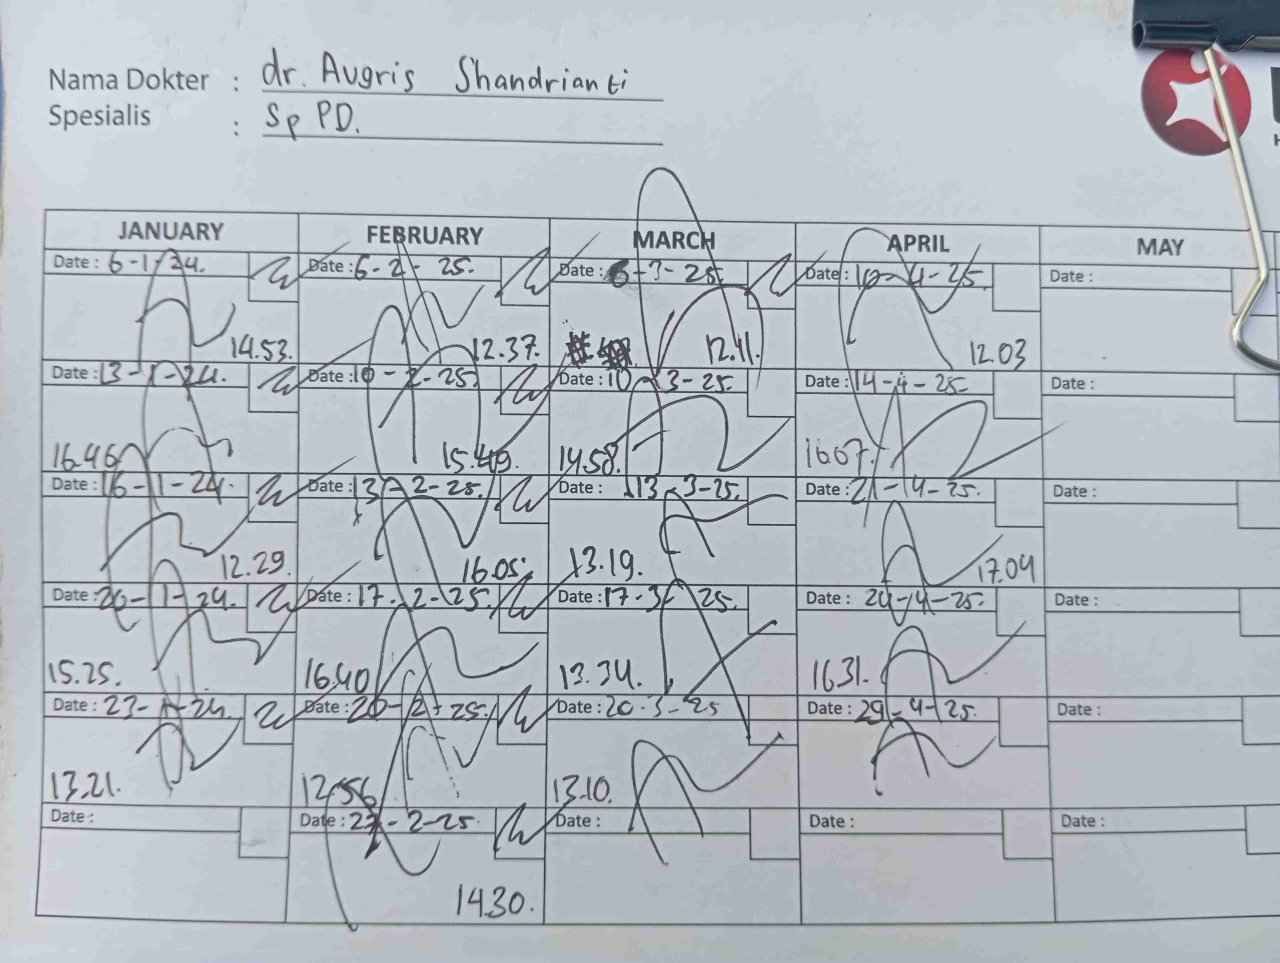 Nama Dokter : dr. Augris Shandrianti
Spesialis : Sp PD.
JANUARY FEBRUARY MARCH APRIL MAY
Date : 6-1-24. Date : 6-2-25. Date : 6-3-25. Date : 10-4-25. Date :
14.53. 12.37. 12.11. 12.03
Date : 13-1-24. Date : 10-2-25. Date : 10-3-25. Date : 14-4-25. Date :
16.46 15.49. 14.58. 16.07.
Date : 16-1-24. Date : 13-2-25. Date : 13-3-25. Date : 21-4-25. Date :
12.29. 16.05. 13.19. 17.04
Date : 20-1-24. Date : 17-2-25. Date : 17-3-25. Date : 24-4-25. Date :
15.25. 16.40 13.34. 16.31.
Date : 23-1-24. Date : 20-2-25. Date : 20-3-25 Date : 29-4-25. Date :
13.21. 12.56 13.10.
Date : Date : 27-2-25. Date : Date : Date :
14.30.